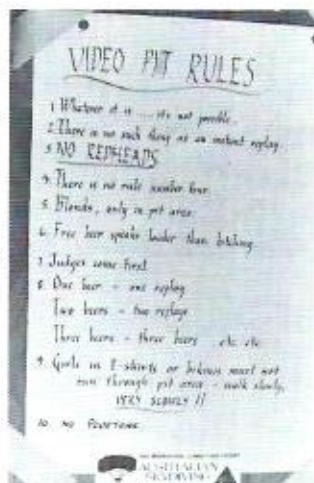 VIDEO PIT RULES
1. Whatever it is .... it's not possible.
2. There is no such thing as an instant replay.
3. NO REDHEADS
4. There is no rule number four.
5. Blonds, only in pit area.
6. Free beer speaks louder than bitching.
7. Judges come first.
8. One beer - one replay
Two beers - two replays
Three beers - three beers etc. etc.
9. Girls in T-shirts or bikinis must not
run through pit area - walk slowly,
VERY SLOWLY !!
10. NO
AUSTRALIAN
SKYDIVING